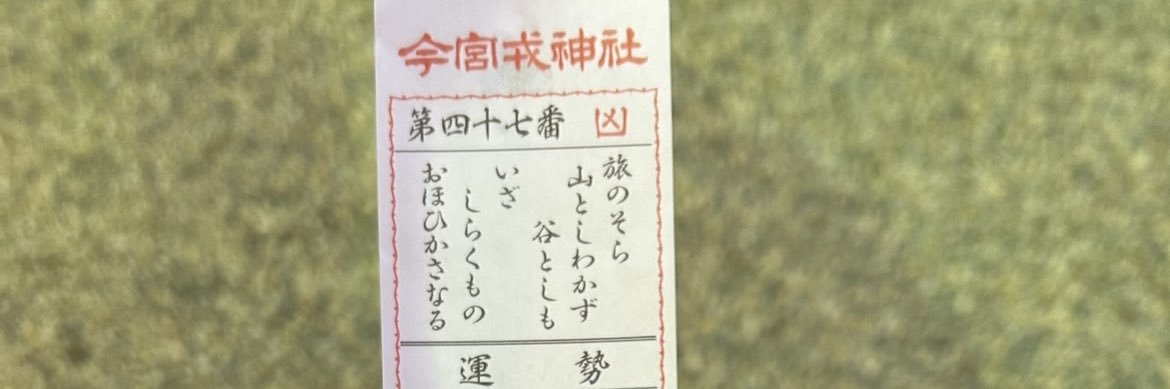 今宮戎神社
第四十七番 凶
旅のそら
山としわかず
谷としも
いざ
しらくもの
おほひかさなる
運勢